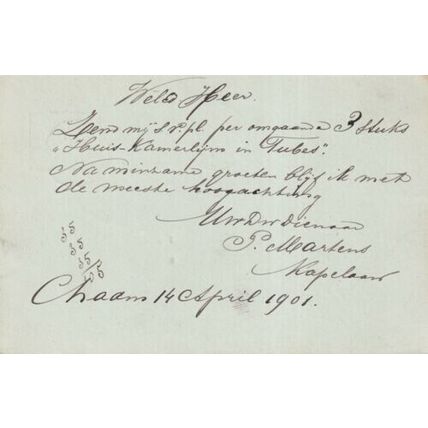 WelEd Heer.
Zend mij s.v.pl. per omgaande 3 stuks
"Huis-Kamerlijm in Tubes".
Na minzame groeten blijf ik met
de meeste hoogachting
UwDwDienaar
P. Martens
Kapelaan
Chaam 14 April 1901.